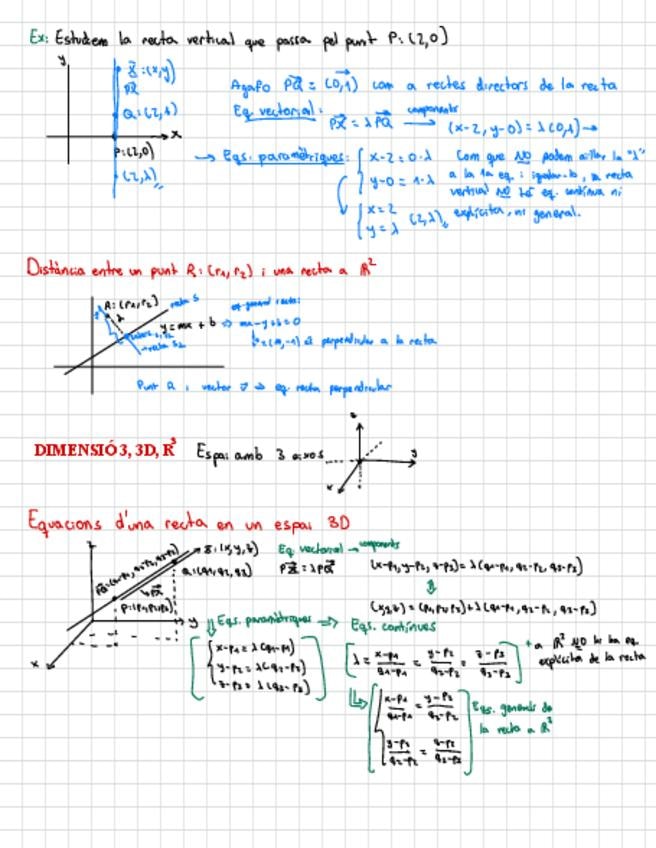 Ex: Estudiem la recta vertical que passa pel punt P:(2,0)
y
X:(x,y)
PQ
Q:(2,1)
x
P:(2,0)
(2,λ)
Agafo PQ = (0,1) com a rectes directors de la recta
Eq. vectorial: PX = λPQ components (x-2, y-0) = λ(0,1) →
→ Eqs. paramètriques: { x-2 = 0·λ
y-0 = 1·λ
{ x = 2
y = λ (2,λ)
Com que NO podem aïllar la "λ"
a la 1a eq. i igualar-la, la recta
vertical NO té eq. contínua ni
explícita, ni general.
Distància entre un punt R:(r1,r2) i una recta a R²
R:(r1,r2)
recta s
y = mx + b ⇒ mx-y+b=0
eq. general recta:
(m,-1) és perpendicular a la recta
Punt R i vector v ⇒ eq. recta perpendicular
DIMENSIÓ 3, 3D, R³ Espai amb 3 eixos
z
y
x
Equacions d'una recta en un espai 3D
z
X:(x,y,z)
PQ:(q1-p1, q2-p2, q3-p3)
Q:(q1,q2,q3)
PX
P:(p1,p2,p3)
y
x
Eq. vectorial → components
PX = λPQ
(x-p1, y-p2, z-p3) = λ(q1-p1, q2-p2, q3-p3)
⇕
(x,y,z) = (p1,p2,p3) + λ(q1-p1, q2-p2, q3-p3)
⇓ Eqs. paramètriques ⇒ Eqs. contínues
{ x-p1 = λ(q1-p1)
y-p2 = λ(q2-p2)
z-p3 = λ(q3-p3)
[λ = x-p1/q1-p1 = y-p2/q2-p2 = z-p3/q3-p3]
+ a R³ NO hi ha eq.
explícita de la recta
{ x-p1/q1-p1 = y-p2/q2-p2
y-p2/q2-p2 = z-p3/q3-p3
Eqs. generals de
la recta a R³